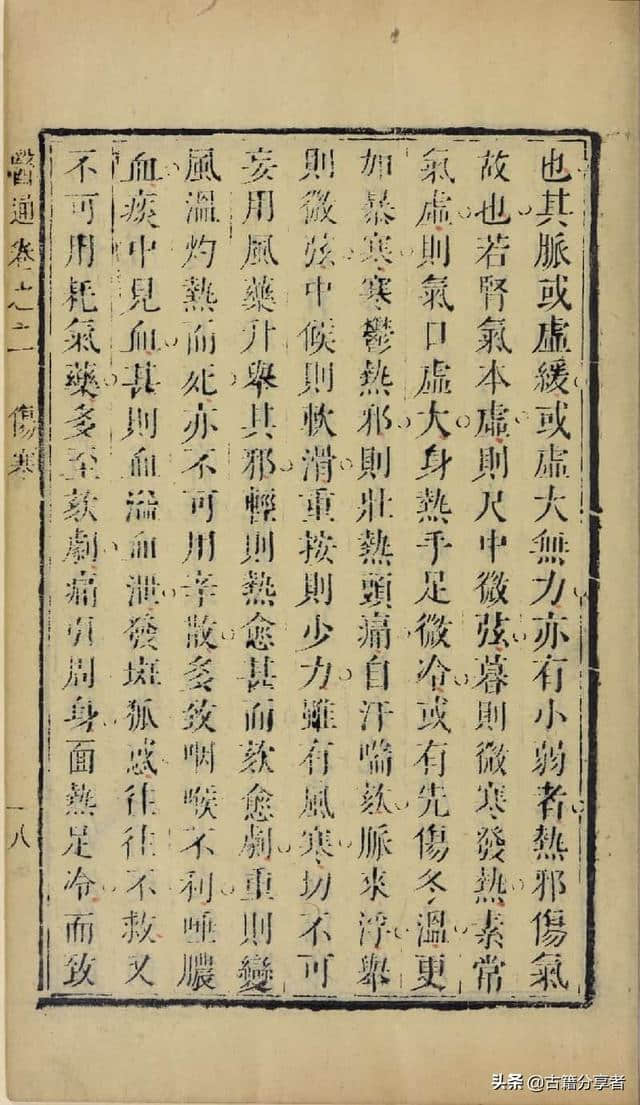 也其脈或虛緩或虛大無力亦有小弱者熱邪傷氣
故也若腎氣本虛則尺中微弦暮則微寒發熱素常
氣虛則氣口虛大身熱手足微冷或有先傷冬溫更
如暴寒寒鬱熱邪則壯熱頭痛自汗喘欬脈來浮舉
則微弦中候則軟滑重按則少力雖有風寒切不可
妄用風藥升舉其邪輕則熱愈甚而欬愈劇重則變
風溫灼熱而死亦不可用辛散多致咽喉不利唾膿
血痰中見血甚則血溢血泄發斑狐惑往往不救又
不可用耗氣藥多至欬劇痛引周身面熱足冷而致
醫通卷之二 傷寒 十八
头条 @古籍分享者